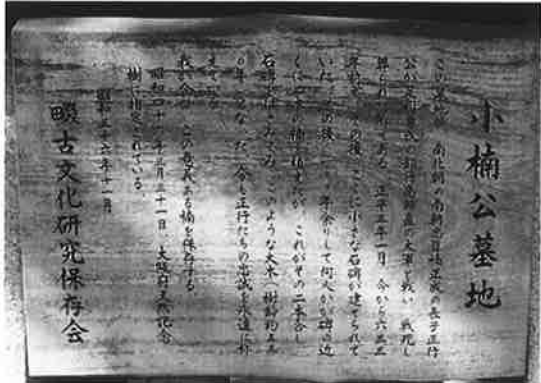 小楠公墓地
この墓地は 南北朝の南朝の忠臣楠正成の長子正行
公が足利賢氏の部将高師直の大軍と戦い 戦死し
葬られた所である 正平三年一月 今から六三三
年前 その後 ここに小さな石碑が建てられて
いた その後 年余りして何人かが碑の近
くに二本の楠を植えたが、これがその二本合し
石碑をはさみこみ このような大木(樹齢約五五
〇年)となった 今も正行たちの忠誠を永遠に
えている
我が会は この意義ある楠を保存する
昭和四十一年三月三十一日、大阪府天然記念
樹に指定されている。
昭和五十六年十一月
畷古文化研究保存会